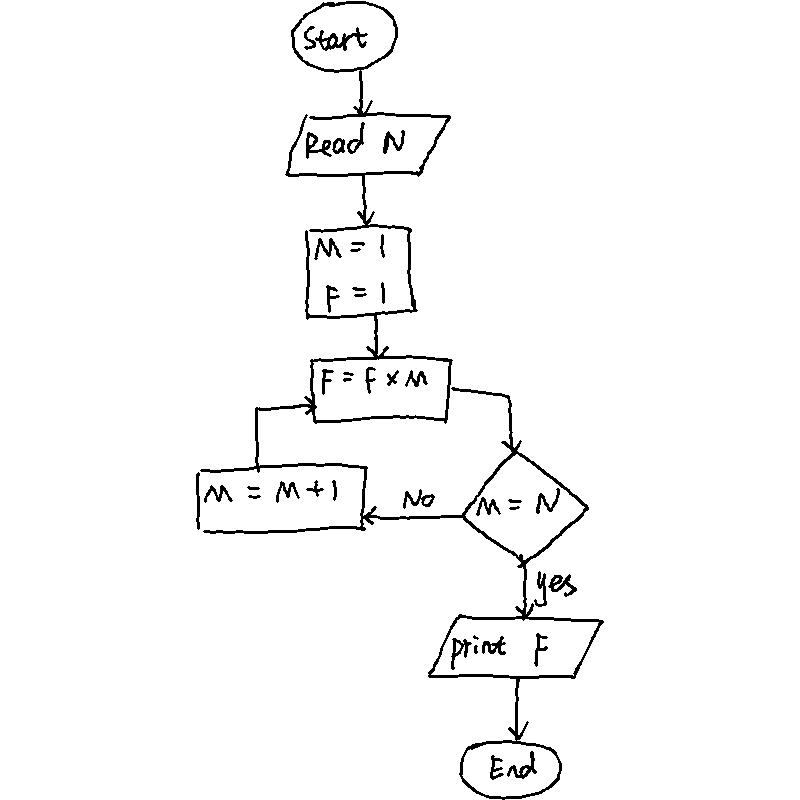 Start
Read N
M = 1
F = 1
F = f × M
M = M + 1
No
M = N
yes
print F
End